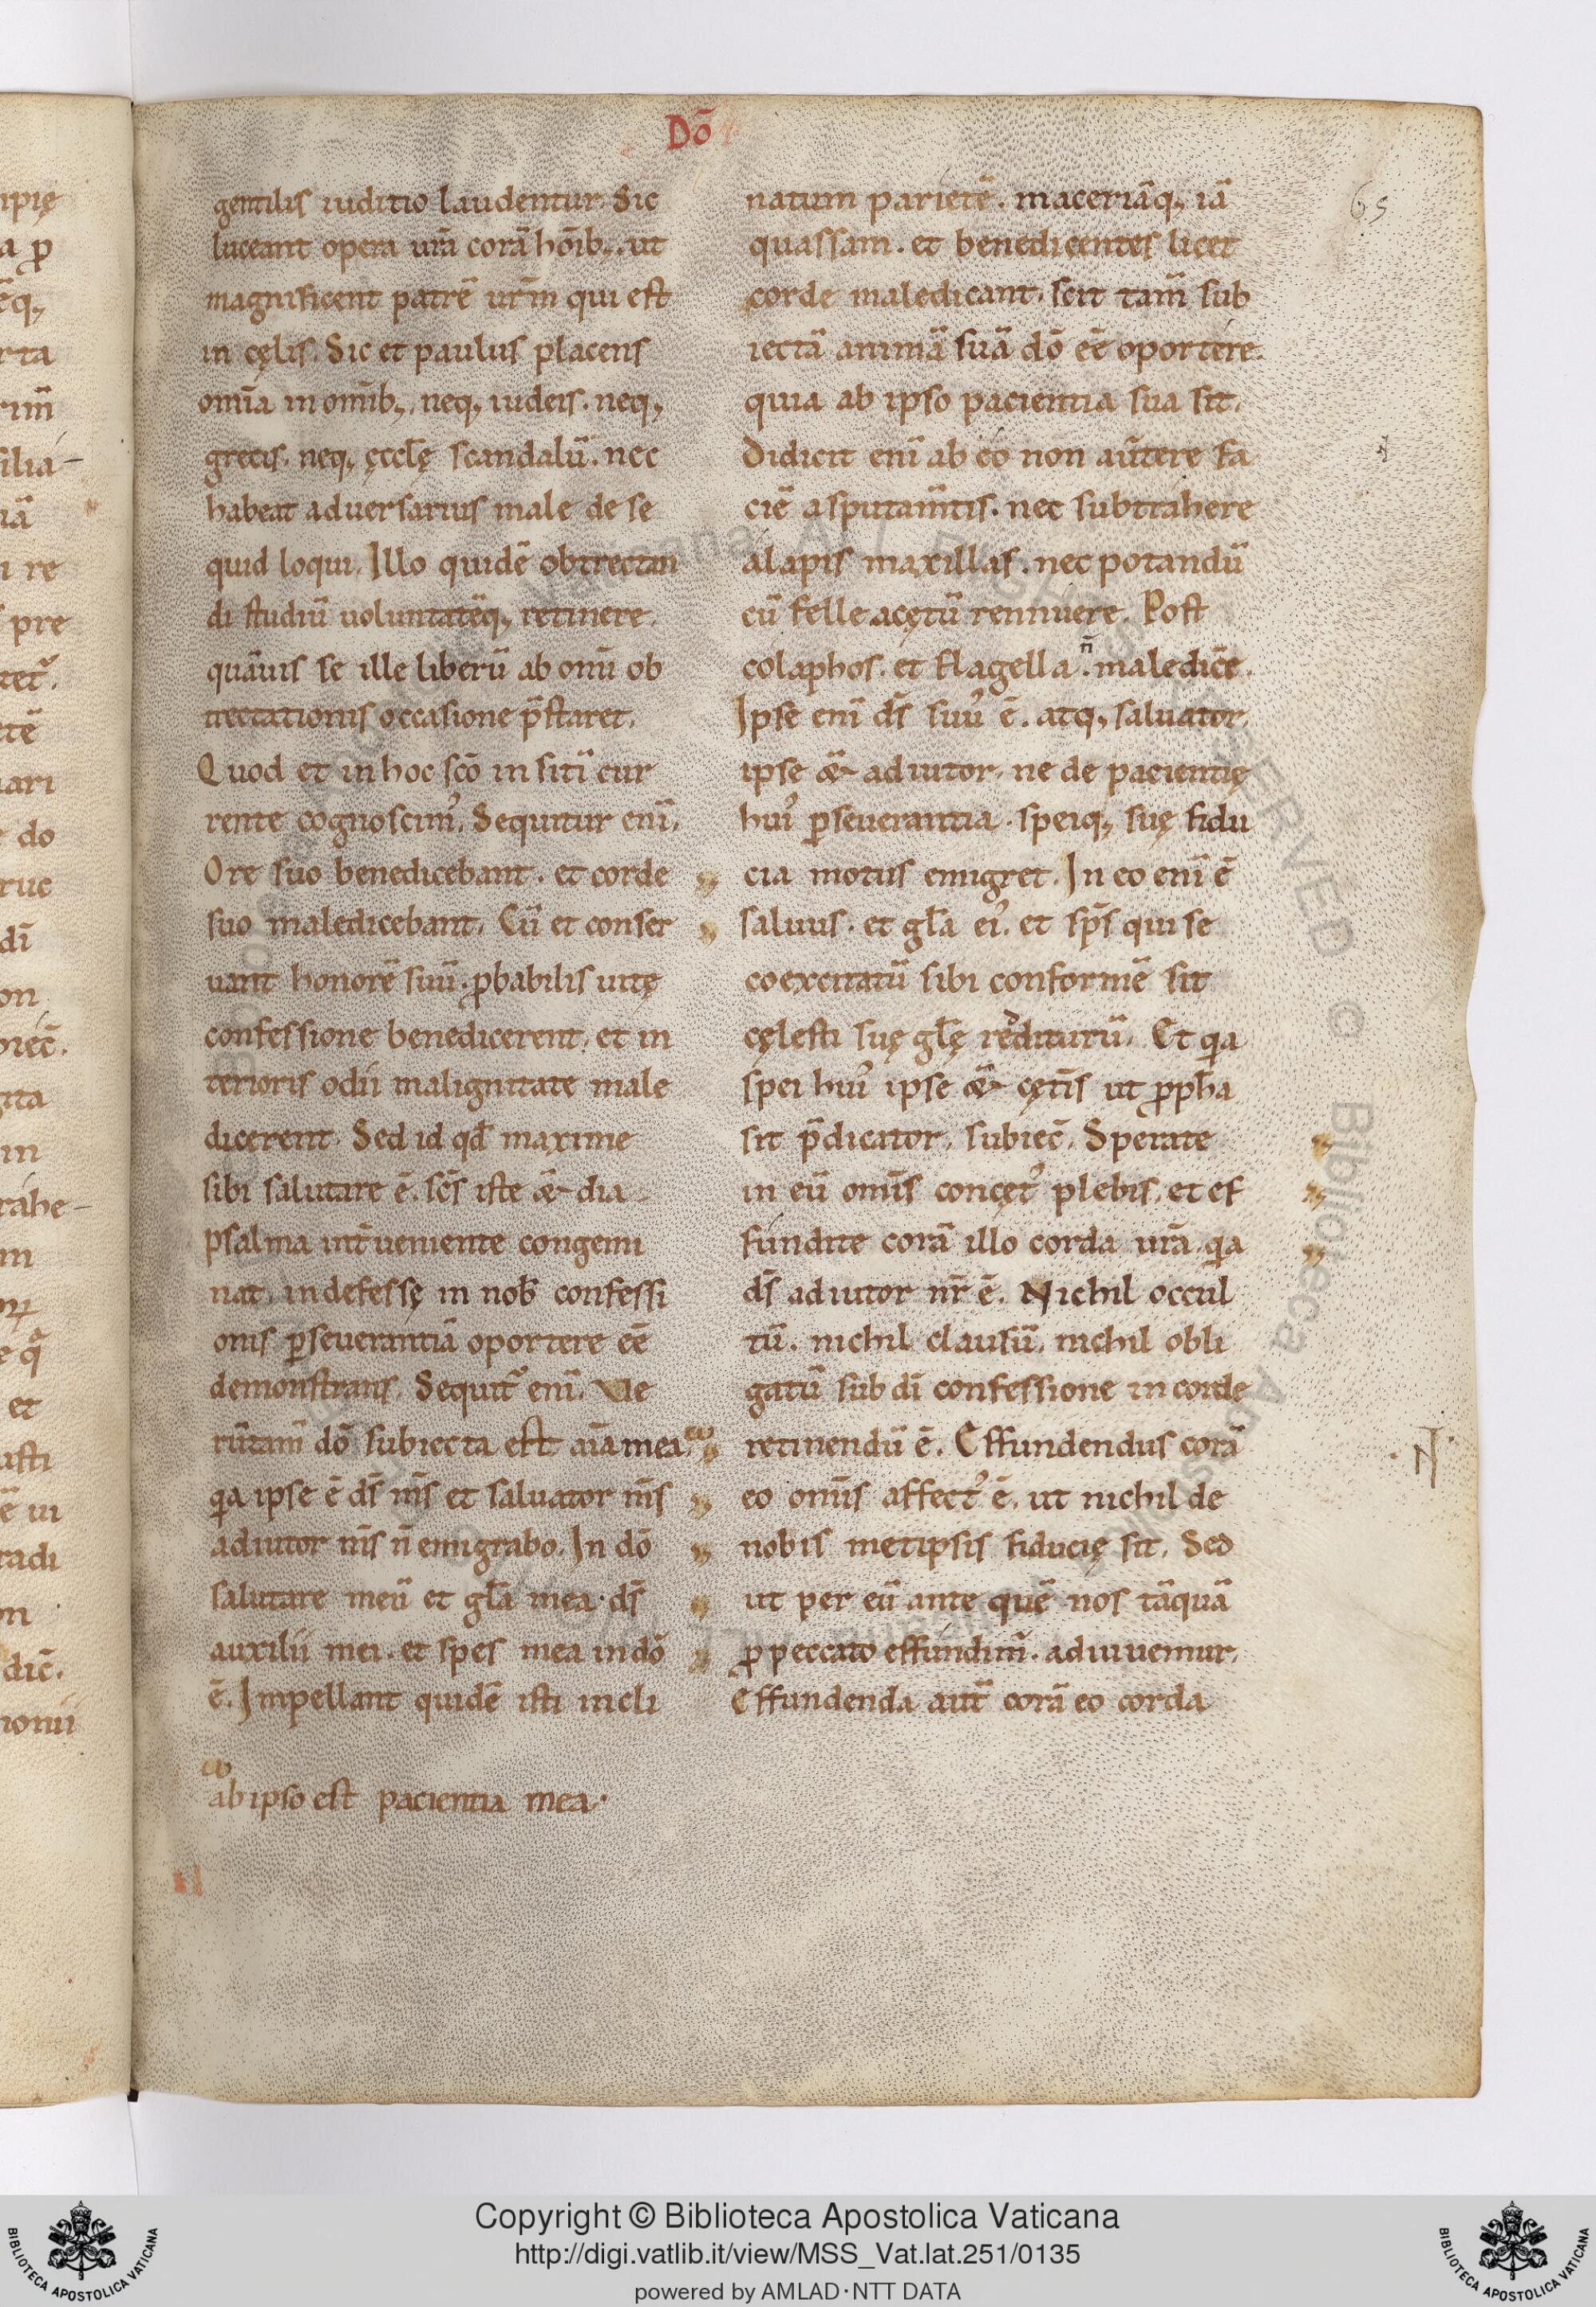 Dō
65
gentilis iuditio laudentur. Sic
luceant opera ur̄a corā hōib;. ut
magnificent patrē ur̄m qui est
in cęlis. Sic et paulus placens
omīa in omīb;. neq; iudeis. neq;
grecis. neq; ęcclę̄ scandalū. nec
habeat aduersarius male de se
quid loqui. Illo quidē obtrectan
di studiū uoluntatēq; retinere.
quāuis se ille liberū ab om̄i ob
trectationis occasione p̄staret.
Quod et in hoc sc̄o in siti cur
rente cognoscim᾿. Sequitur enī.
Ore suo benedicebant. et corde
suo maledicebant. Cū et conser
uant honorē suū. ꝓbabilis uitę
confessione benedicerent. et in
terioris odii malignitate male
dicerent. Sed id qđ maxime
sibi salutare ē. sc̄s iste & dia
psalma int̄ueniente congemi
nat. indefessę in nob᾿ confessi
onis ꝑseuerantiā oportere eē
demonstrans. Sequit᾿ enī. Ve
rūtam̄ dō subiecta est aīa mea.
qa ipse ē ds̄ m̄s et saluator m̄s
adiutor m̄s n̄ emigrabo. In dō
salutare meū et gl̄a mea. ds̄
auxilii mei. et spes mea in dō
ē. Impellant quidē isti incli
ab ipso est pacientia mea.
natum parietē. maceriāq; iā
quassam. et benedicentes licet
corde maledicant. scit tam̄ sub
iectā animā suā dō eē oportere.
quia ab ipso pacientia sua sit.
Didicit enī ab eo non aūtere fa
ciē asputam̄tis. nec subtrahere
alapis maxillas. nec potandū
cū felle acętū rennuere. Post
colaphos. et flagella n̄. maledic̄e.
Ipse enī ds̄ suu᾿ ē. atq; saluator.
ipse & adiutor. ne de pacientię
hui᾿ ꝑseuerantia. speiq; suę fidu
cia motus emigret. In eo enī ē
saluus. et gl̄a ei᾿. et sp̄s qui se
coexcitatū sibi conformē sit
cęlesti suę gl̄ę redditurū. Et qa
spei hui᾿ ipse & cęt̄is ut ꝓph̄a
sit p̄dicator. subiec̄. Sperate
in eū om̄is concęt᾿ plebis. et ef
fundite corā illo corda ur̄a. qa
ds̄ adiutor nr̄ ē. Nichil occul
tū. nichil clausū. nichil obli
gatū sub dī confessione in corde
retinendū ē. Effundendus corā
eo om̄is affect᾿ ē. ut nichil de
nobis metipsis fiducię sit. Sed
ut per eū ante quē nos tāquā
ꝓ peccato effundim᾿. adiuuemur.
Effundenda aut̄ corā eo corda
ipię
a ꝓ
ēq;
rta
rim̄
ilia-
iā
n re
pre
tet᾿.
tē
ari
do
ruc
dī
on
iec̄.
ita
in
rahe-
m
et
usti
ē ui
radi
on
dic̄.
nonii
Copyright © Biblioteca Apostolica Vaticana
http://digi.vatlib.it/view/MSS_Vat.lat.251/0135
powered by AMLAD·NTT DATA
BIBLIOTECA APOSTOLICA VATICANA
BIBLIOTECA APOSTOLICA VATICANA